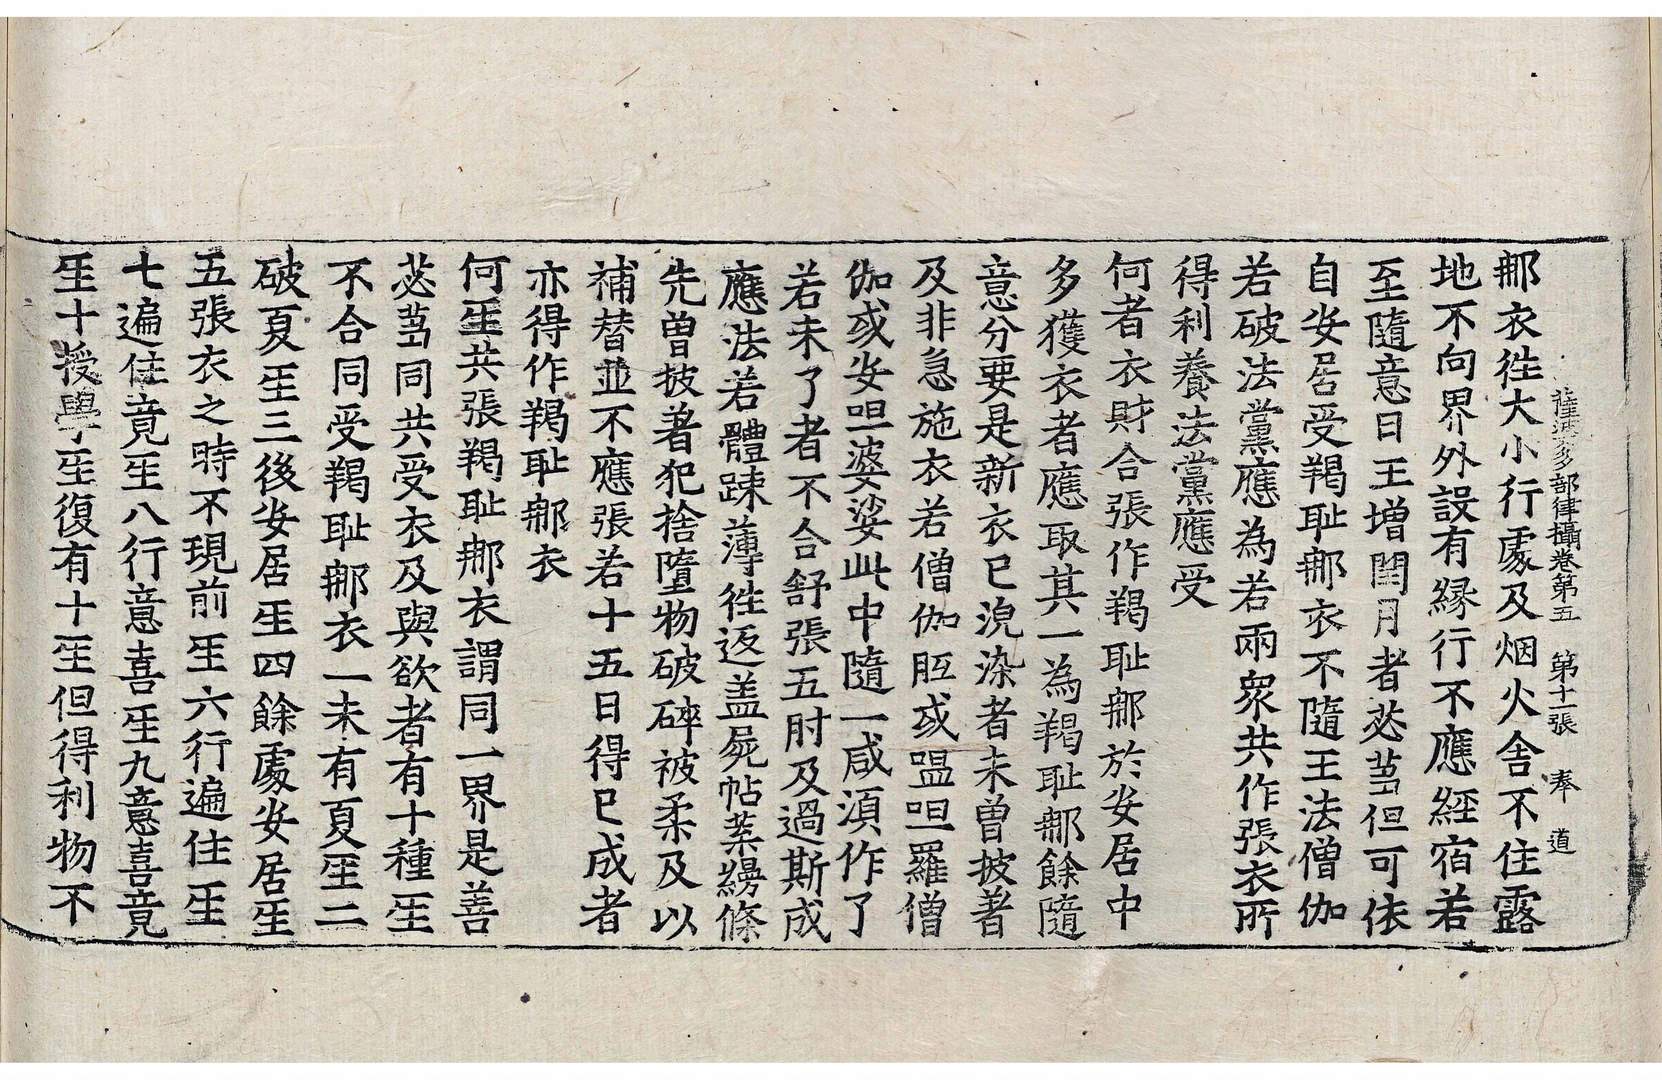 薩婆多部律攝卷第五 第十一張 奉 道
那衣往大小行處及烟火舎不住露
地不向界外設有緣行不應經宿若
至隨意日王增閏月者苾芻但可依
自安居受羯恥那衣不隨王法僧伽
若破法黨應為若兩衆共作張衣所
得利養法黨應受
何者衣財合張作羯恥那於安居中
多獲衣者應取其一為羯恥那餘隨
意分要是新衣已浣染者未曾披著
及非急施衣若僧伽胝或嗢呾羅僧
伽或安呾婆娑此中隨一咸須作了
若未了者不合舒張五肘及過斯成
應法若體踈薄往返盖屍帖葉條
先曾披著犯捨墮物破碎被柔及以
補替並不應張若十五日得已成者
亦得作羯恥那衣
何𤯔共張羯恥那衣謂同一界是善
苾芻同共受衣及與欲者有十種𤯔
不合同受羯恥那衣一未有夏𤯔二
破夏𤯔三後安居𤯔四餘處安居𤯔
五張衣之時不現前𤯔六行遍住𤯔
七遍住竟𤯔八行意喜𤯔九意喜竟
𤯔十授學𤯔復有十𤯔但得利物不